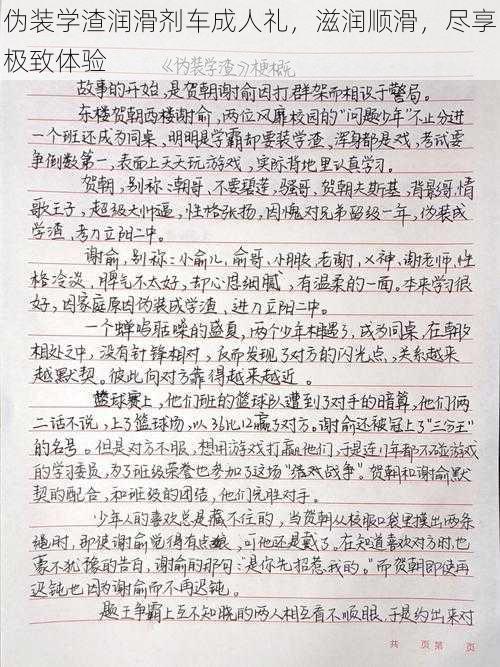 伪装学渣润滑剂车成人礼，滋润顺滑，尽享
极致体验
《伪装学渣》梗概
故事的开始，是贺朝谢俞因打群架而相识于警局。
东楼贺朝西楼谢俞，两位风靡校园的"问题少年"不止分进
一个班还成为同桌，明明是学霸却要装学渣，浑身都是戏，考试要
争倒数第一，表面上天天玩游戏，实际背地里认真学习。
贺朝，别称：朝哥，不要碧莲，骚哥，贺朝夫斯基，背影哥，情
歌王子，超级大帅逼，性格张扬，因愧对兄弟留级一年，伪装成
学渣，考入立阳二中。
谢俞，别称：小俞儿，俞哥，小朋友，老谢，X神，谢老师，性
格冷淡，脾气不太好，却心思细腻，有温柔的一面。本来学习很
好，因家庭原因伪装成学渣，进入立阳二中。
一个蝉鸣聒噪的盛夏，两个少年相遇了，成为同桌，在朝夕
相处之中，没有针锋相对，反而发现了对方的闪光点，关系越来
越默契。彼此向对方靠得越来越近。
篮球赛上，他们班的篮球队遭到了对手的暗算，他们俩
二话不说，上了篮球场，以36比12赢了对方。谢俞还被冠上了"三分王"
的名号。但是对方不服，想用游戏打赢他们，于是连几年都不碰游戏
的学习委员，为了班级荣誉也参加了这场"结戏战争"。贺朝和谢俞默
契的配合，和班级的团结，他们完胜对手。
少年人的喜欢总是藏不住的，当贺朝从校服口袋里摸出两条
绳时，即使谢俞觉得有点娘，可他还是戴了。在知道喜欢对方时，也
毫不犹豫的告白，谢俞的那句："是你先招惹我的。"而贺朝即使再
迟钝也因为谢俞而不再迟钝。
题王争霸上互不知晓的两人相互看不顺眼，于是约出来对
共 页 第 页